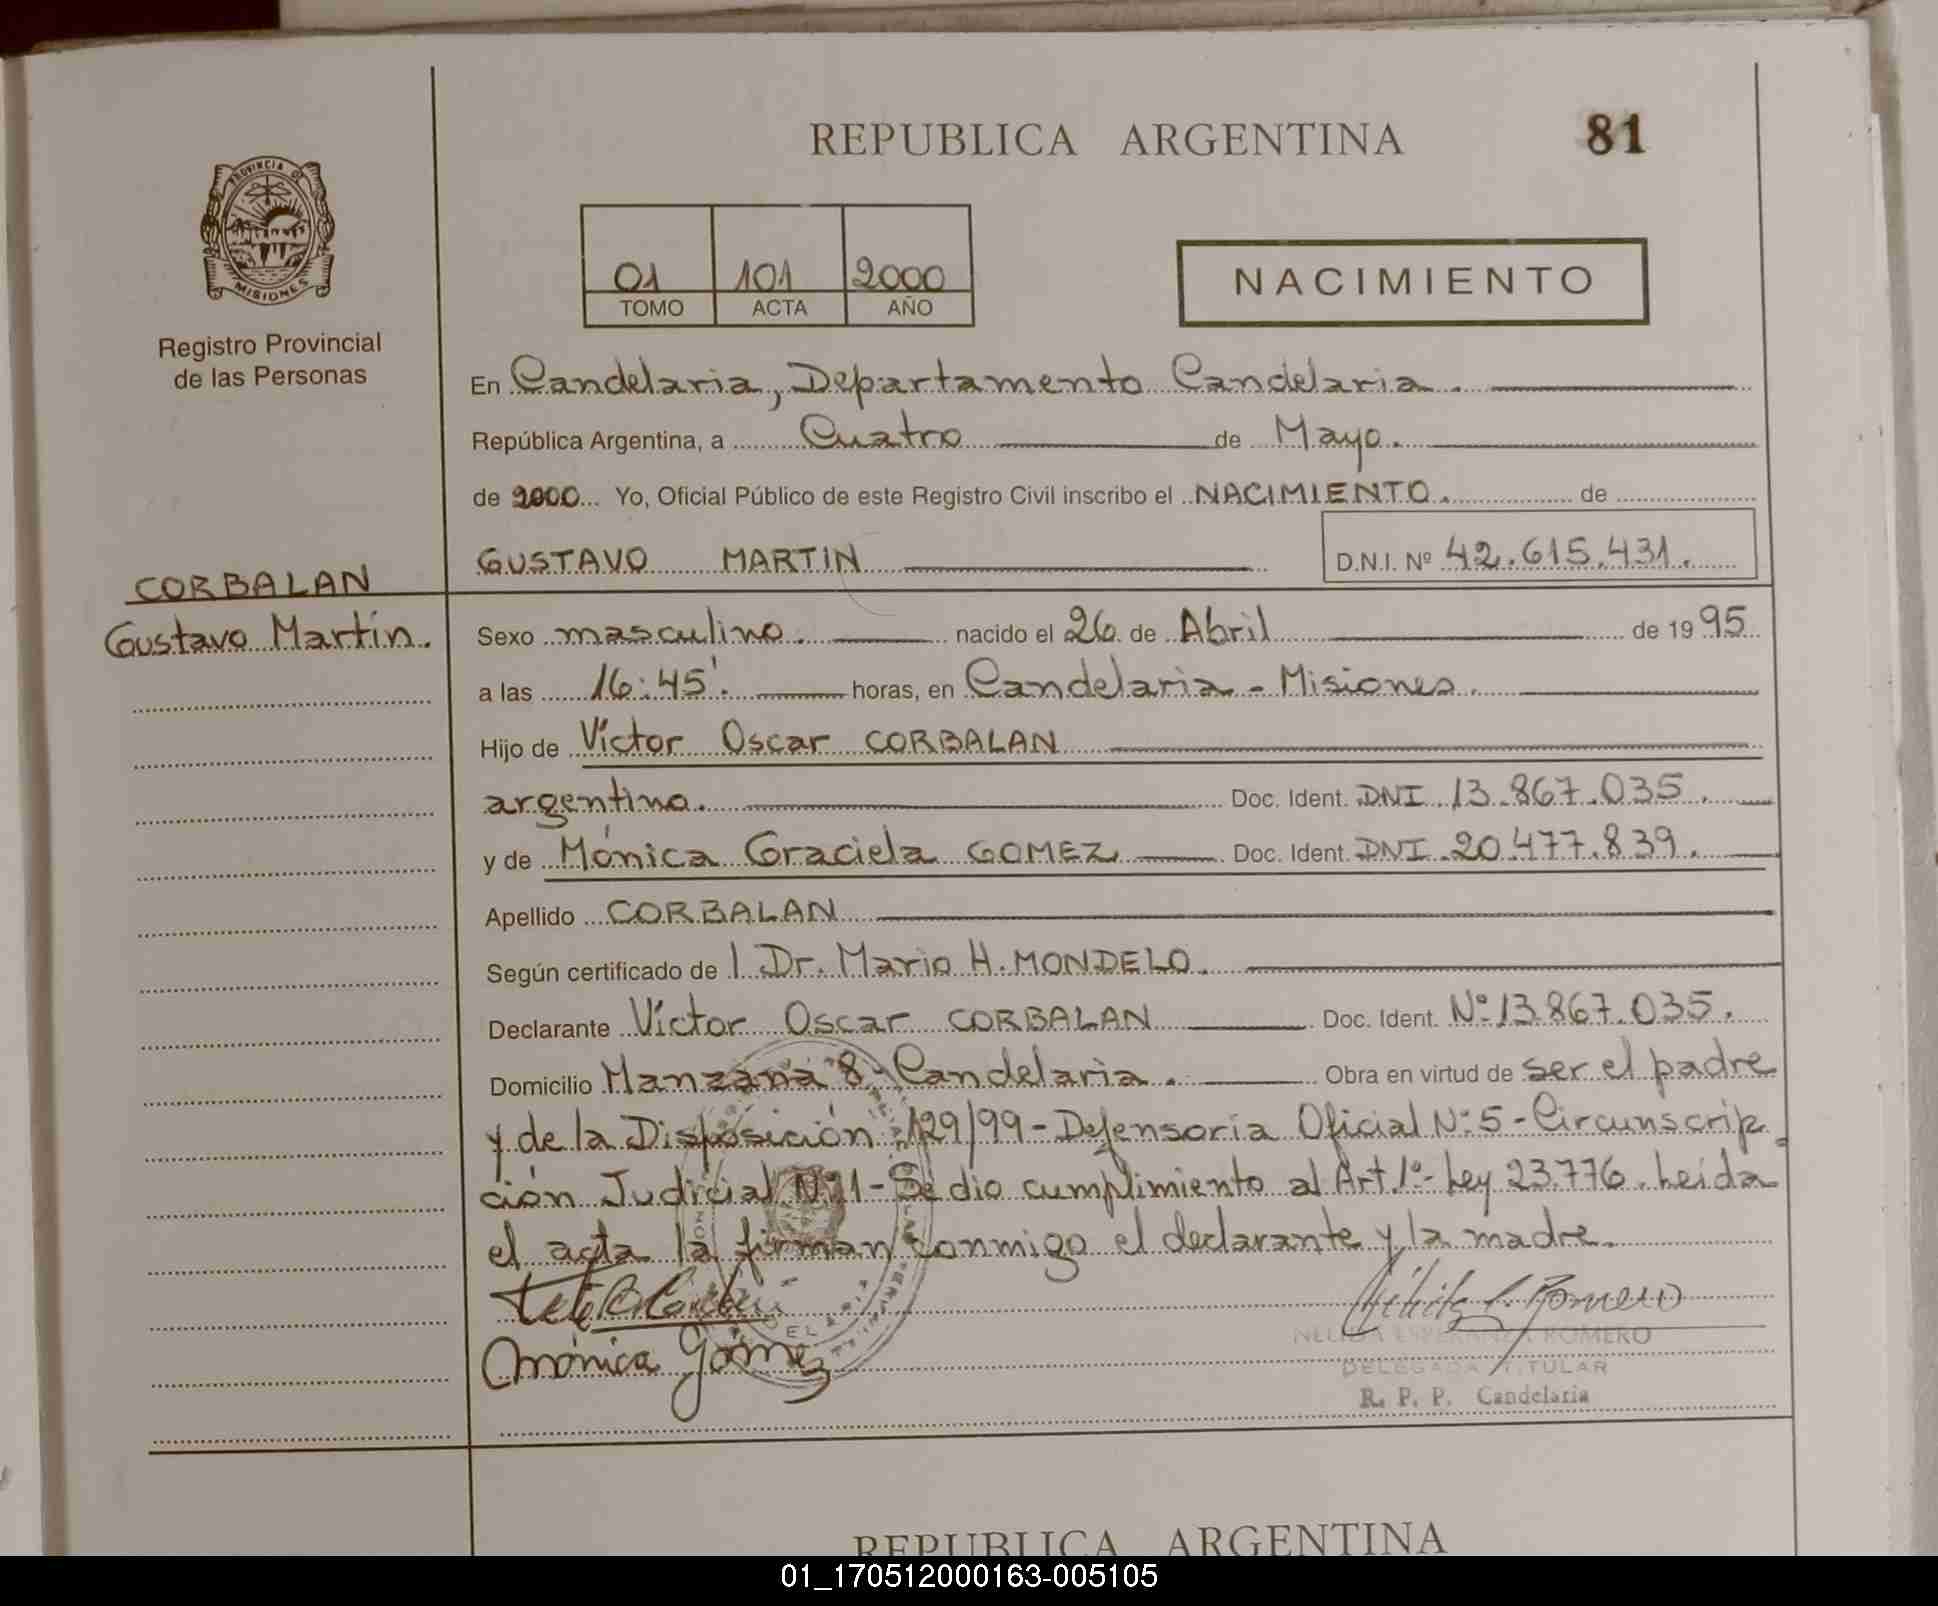 REPUBLICA ARGENTINA
81
PROVINCIA DE
MISIONES
Registro Provincial
de las Personas
01 101 2000
TOMO ACTA AÑO
NACIMIENTO
En Candelaria, Departamento Candelaria.
República Argentina, a Cuatro de Mayo.
de 2000 Yo, Oficial Público de este Registro Civil inscribo el NACIMIENTO. de
GUSTAVO MARTIN D.N.I. Nº 42.615.431.
CORBALAN
Gustavo Martín.
Sexo masculino. nacido el 26 de Abril de 1995
a las 16:45'. horas, en Candelaria - Misiones.
Hijo de Víctor Oscar CORBALAN
argentino. Doc. Ident. DNI 13.867.035.
y de Mónica Graciela GOMEZ Doc. Ident. DNI 20.477.839.
Apellido CORBALAN
Según certificado de l Dr. Mario H. MONDELO.
Declarante Víctor Oscar CORBALAN Doc. Ident. Nº 13.867.035.
Domicilio Manzana 8, Candelaria. Obra en virtud de ser el padre
y de la Disposición 129/99 - Defensoría Oficial Nº 5 - Circunscrip
ción Judicial Nº 1 - Se dio cumplimiento al Art. 1º - Ley 23.776. Leída
el acta la firman conmigo el declarante y la madre.
Romero
NELIDA ESPERANZA ROMERO
Mónica Gómez
DELEGADA TITULAR
R. P. P. Candelaria
REPUBLICA ARGENTINA
01_170512000163-005105